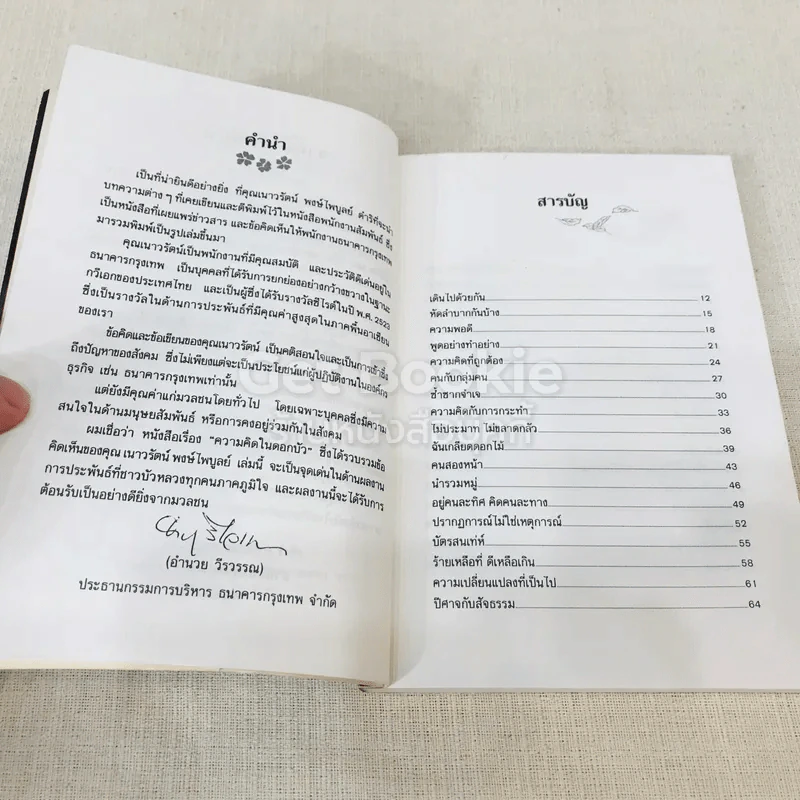 คำนำ
เป็นที่น่ายินดีอย่างยิ่ง ที่คุณเนาวรัตน์ พงษ์ไพบูลย์ ดำริที่จะนำ
บทความต่าง ๆ ที่เคยเขียนและตีพิมพ์ไว้ในหนังสือพนักงานสัมพันธ์ ซึ่ง
เป็นหนังสือที่เผยแพร่ข่าวสาร และข้อคิดเห็นให้พนักงานธนาคารกรุงเทพ
มารวมพิมพ์เป็นรูปเล่มขึ้นมา
คุณเนาวรัตน์เป็นพนักงานที่มีคุณสมบัติ และประวัติดีเด่นอยู่ใน
ธนาคารกรุงเทพ เป็นบุคคลที่ได้รับการยกย่องอย่างกว้างขวางในฐานะ
กวีเอกของประเทศไทย และเป็นผู้ซึ่งได้รับรางวัลซีไรต์ในปี พ.ศ. 2523
ซึ่งเป็นรางวัลในด้านการประพันธ์ที่มีคุณค่าสูงสุดในภาคพื้นอาเซียน
ของเรา
ข้อคิดและข้อเขียนของคุณเนาวรัตน์ เป็นคติสอนใจและเป็นการเข้าซึ้ง
ถึงปัญหาของสังคม ซึ่งไม่เพียงแต่จะเป็นประโยชน์แก่ผู้ปฏิบัติงานในองค์กร
ธุรกิจ เช่น ธนาคารกรุงเทพเท่านั้น
แต่ยังมีคุณค่าแก่มวลชนโดยทั่วไป โดยเฉพาะบุคคลซึ่งมีความ
สนใจในด้านมนุษยสัมพันธ์ หรือการคงอยู่ร่วมกันในสังคม
ผมเชื่อว่า หนังสือเรื่อง "ความคิดในดอกบัว" ซึ่งได้รวบรวมข้อ
คิดเห็นของคุณ เนาวรัตน์ พงษ์ไพบูลย์ เล่มนี้ จะเป็นจุดเด่นในด้านผลงาน
การประพันธ์ที่ชาวบัวหลวงทุกคนภาคภูมิใจ และผลงานนี้จะได้รับการ
ต้อนรับเป็นอย่างดียิ่งจากมวลชน
(อำนวย วีรวรรณ)
ประธานกรรมการบริหาร ธนาคารกรุงเทพ จำกัด
สารบัญ
เดินไปด้วยกัน 12
หัดลำบากกันบ้าง 15
ความพอดี 18
พูดอย่างทำอย่าง 21
ความคิดที่ถูกต้อง 24
คนกับกลุ่มคน 27
ซ้ำซากจำเจ 30
ความคิดกับการกระทำ 33
ไม่ประมาท ไม่ขลาดกลัว 36
ฉันเกลียดดอกไม้ 39
คนสองหน้า 43
นำรวมหมู่ 46
อยู่คนละทิศ คิดคนละทาง 49
ปรากฏการณ์ไม่ใช่เหตุการณ์ 52
บัตรสนเท่ห์ 55
ร้ายเหลือที่ ดีเหลือเกิน 58
ความเปลี่ยนแปลงที่เป็นไป 61
ปีศาจกับสัจธรรม 64
Get Bookie